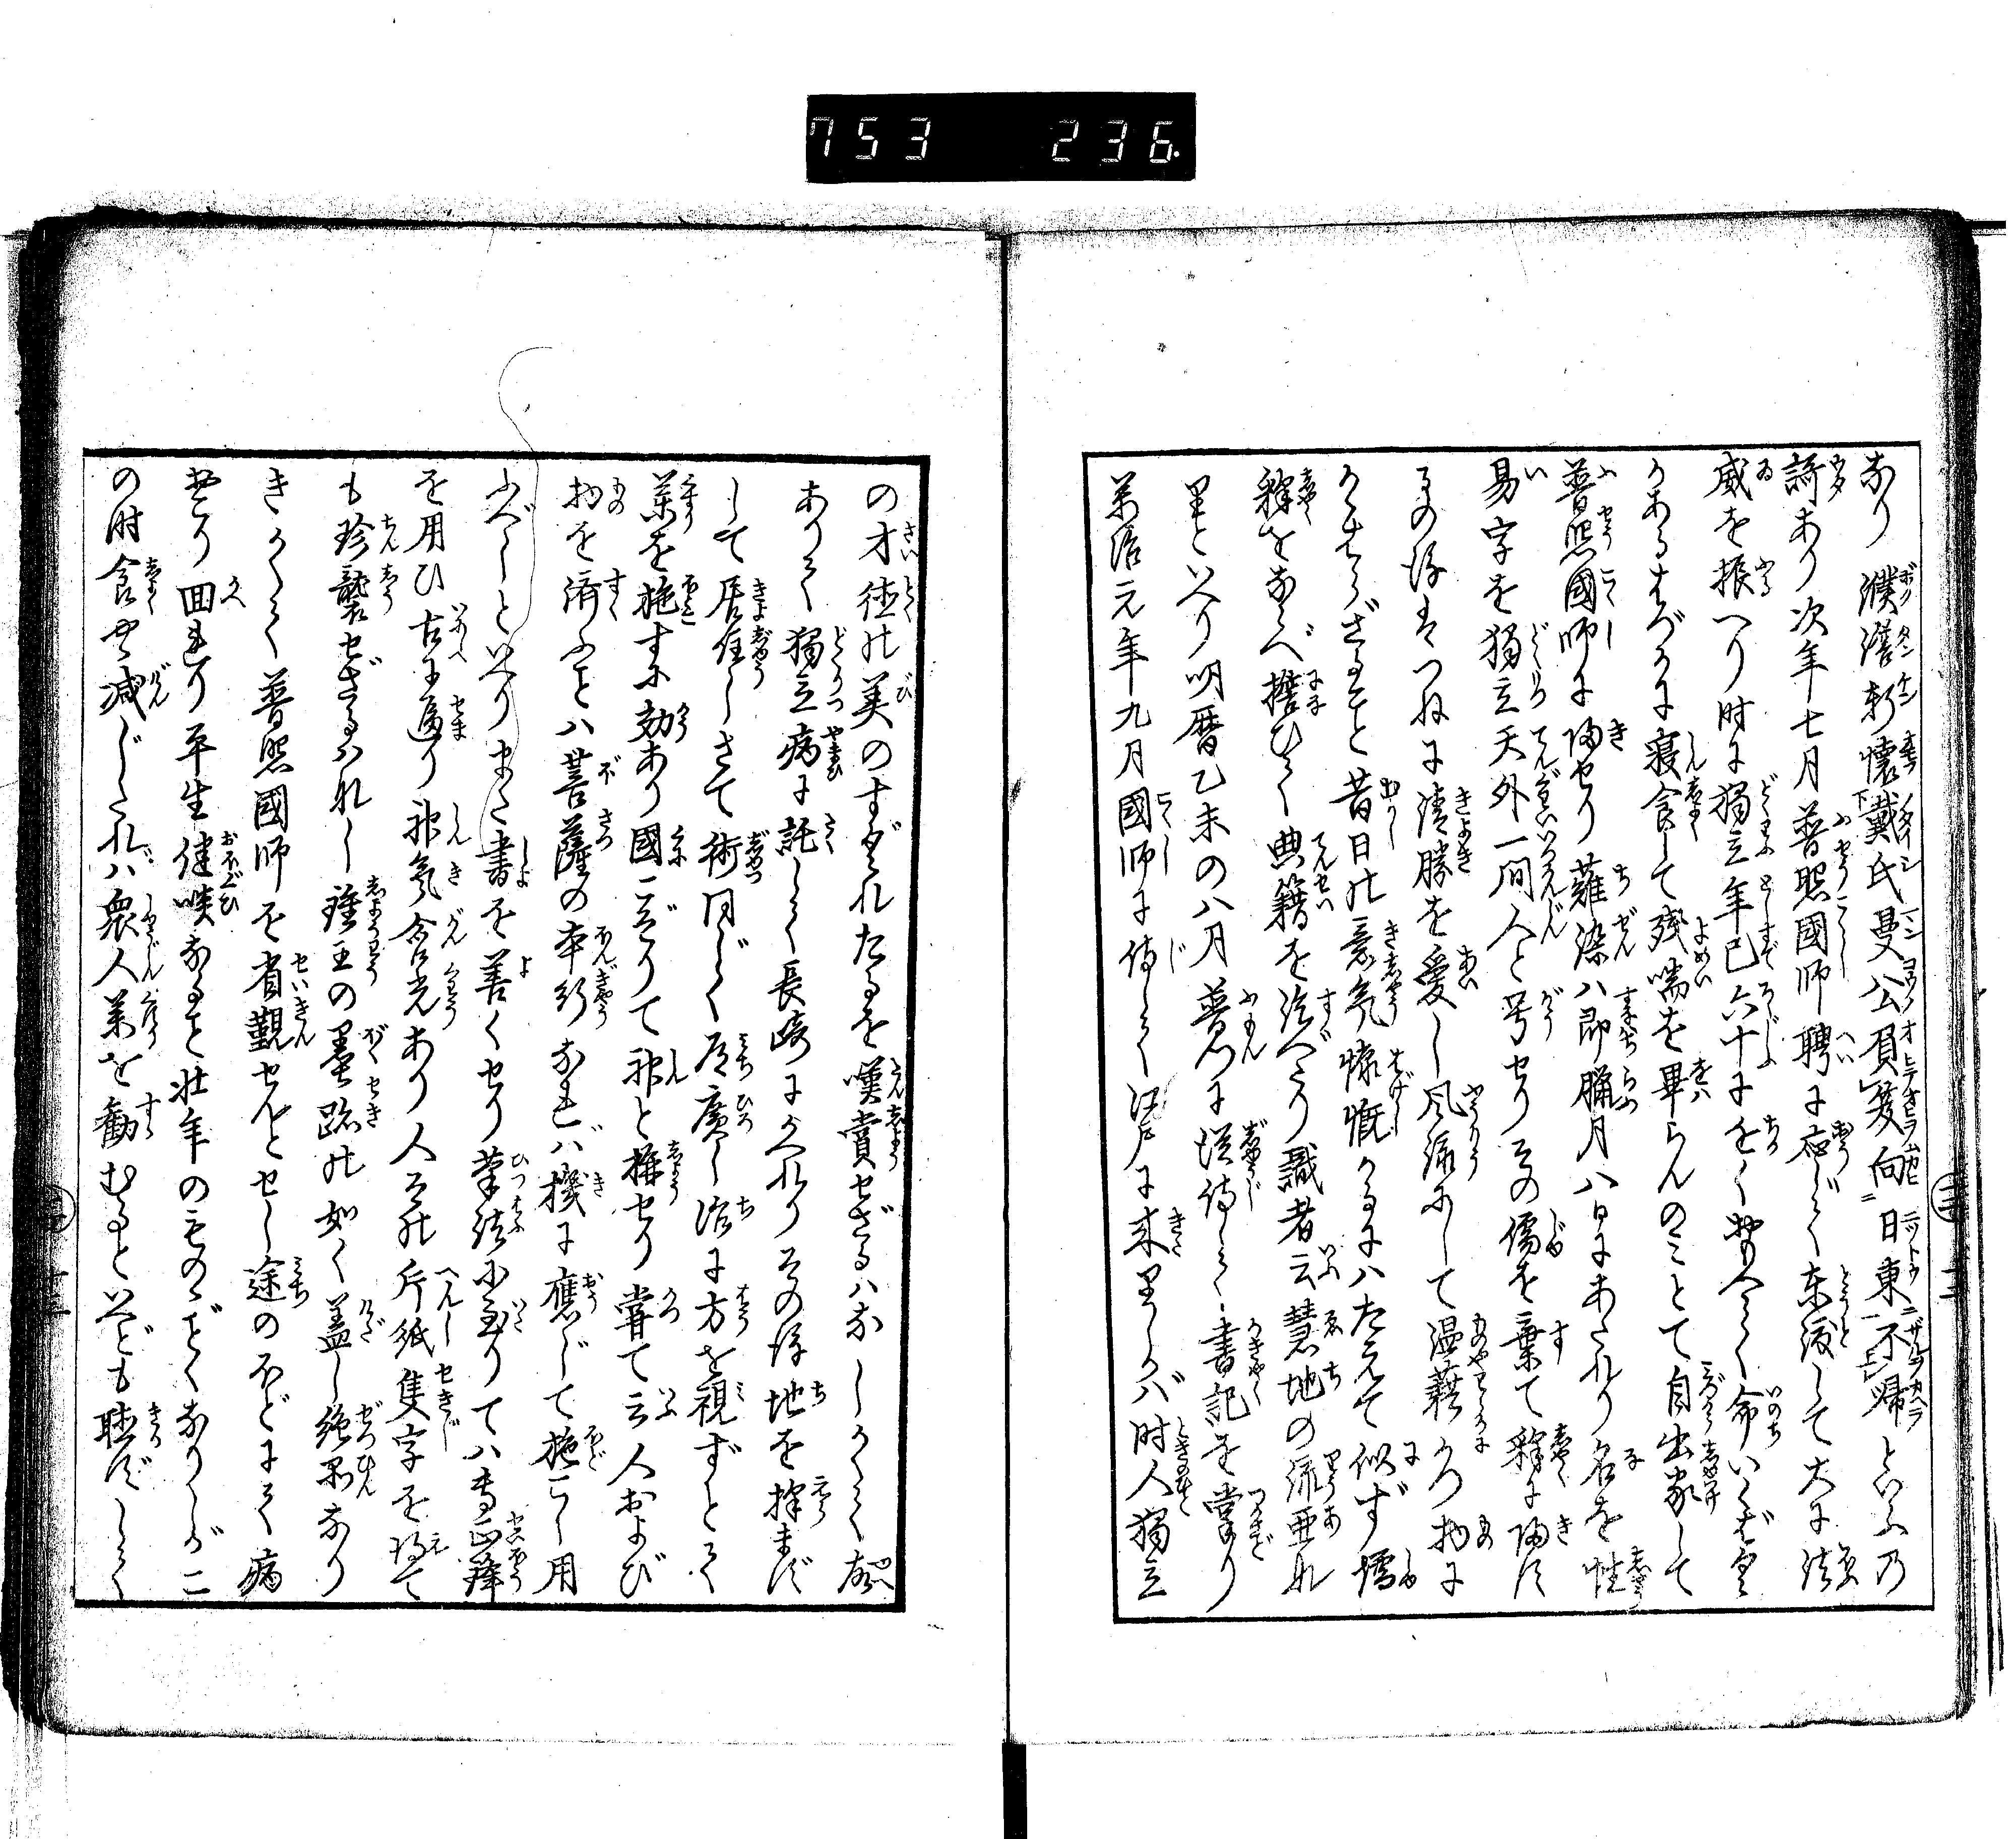 753 236.
なり 濮澹軒懐戴氏曼公負笈向日東不帰といふ乃
詩あり次年七月普照國師聘に応じて東渡して大に法
威を振へり時に獨立年已六十にちかく命いくばく
かあるはづかに寝食して残喘を畢らんのミとて自出家して
普照國師に帰せり薙染ハ即臘月八日にあたれり名を性
易字を獨立天外一間人と号せりその儒を棄て釋に帰に
その後はつねに清勝を愛し風流にして温藉かつ物に
かゝはらざること昔日の意気慷慨なるにハたえて似ず儒
釋をならべ攜ひて典籍を渉べたり識者云慧地の流亜な
里といへり明暦乙未の八月普門に従侍して書記を掌り
萬治元年九月國師に侍して江戸に来里しかバ時人獨立
の才徳の美のすぐれたるを嘆賞せざるハなししかして故
ありて獨立病に託して長崎にかへれりその後地を擇まず
して居住しさて術同じく道廣し治に方を視ずとて
薬を施すに効あり國こぞりて神と称せり嘗て云人および
物を済ふことハ菩薩の本行なれバ機に應じて施こし用
ふべしといへりまた書を善くせり筆法に至りてハ専
を用ひ古に逼り神氣含光あり人その片紙隻字を得て
も珍襲せざるハなし鍾王の墨跡の如く蓋し絶品なり
きかくて普照國師を省覲せんとせし途のほどにて病
起り回れり平生健啖なること壮年のものゝごとくなりしが二
の時食やゝ減じたれバ衆人薬を勧むるといへども聴ずして